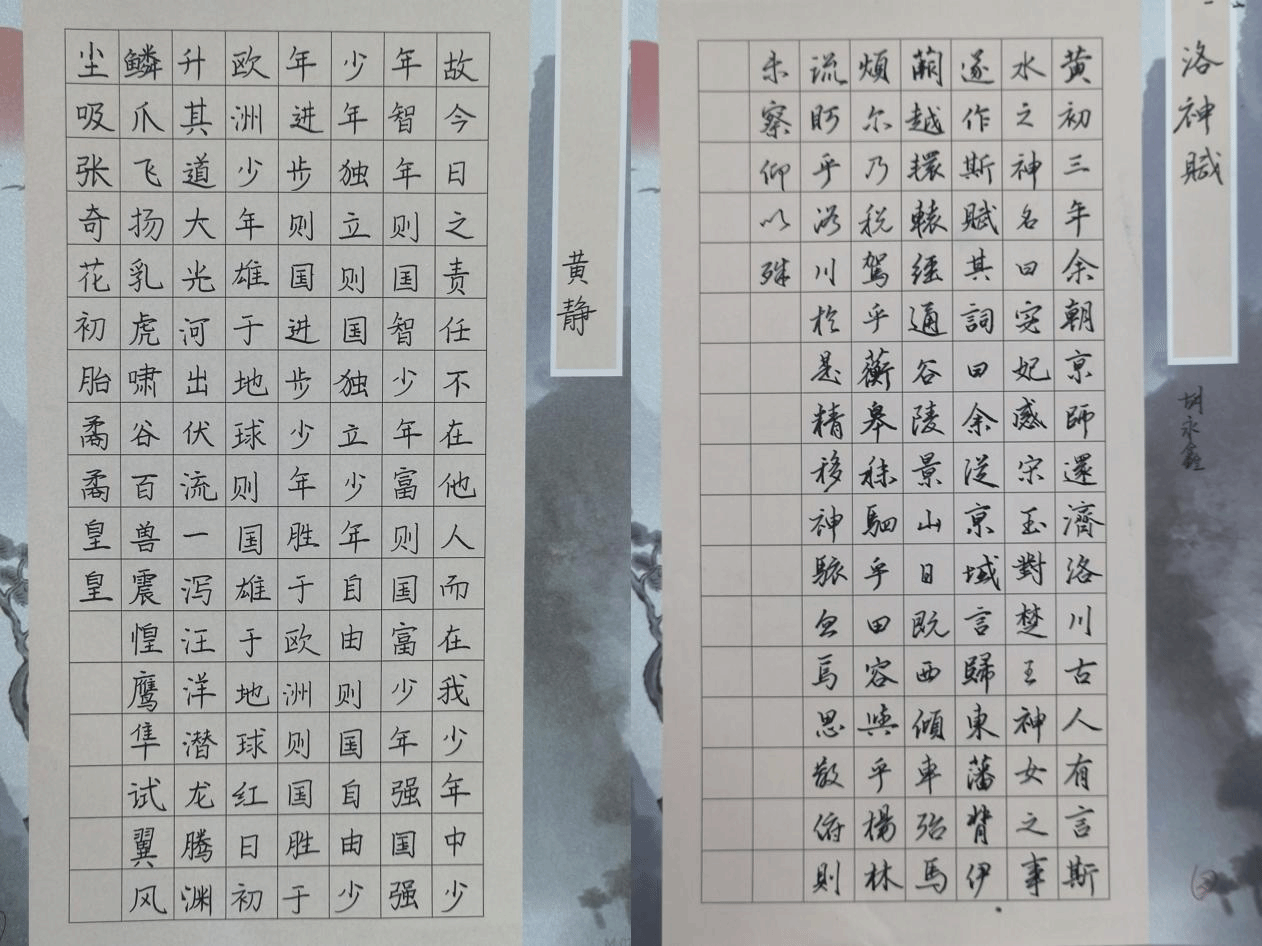 故今日之责任不在他人而在我少年中少
年智年则国智少年富则国富少年强国强
少年独立则国独立少年自由则国自由少
年进步则国进步少年胜于欧洲则国胜于
欧洲少年雄于地球则国雄于地球红日初
升其道大光河出伏流一泻汪洋潜龙腾渊
鳞爪飞扬乳虎啸谷百兽震惶鹰隼试翼风
尘吸张奇花初胎矞矞皇皇
黄静
洛神賦
黄初三年余朝京師還濟洛川古人有言斯
水之神名曰宓妃感宋玉對楚王神女之事
遂作斯賦其詞曰余從京域言歸東藩背伊
闕越轘轅經通谷陵景山日既西傾車殆馬
煩尔乃税駕乎蘅皋秣駟乎田容與乎楊林
流眄乎洛川於是精移神駭忽焉思散俯則
未察仰以殊
永鑫